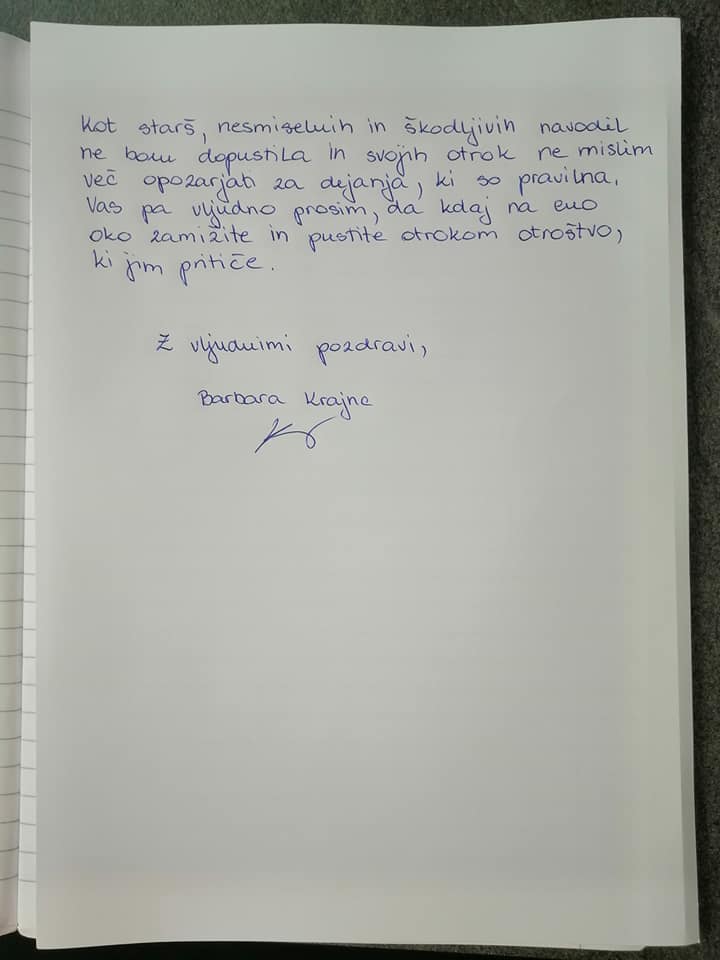 Kot starš, nesmiselnih in škodljivih navodil
ne bom dopustila in svojih otrok ne mislim
več opozarjati za dejanja, ki so pravilna.
Vas pa vljudno prosim, da kdaj na eno
oko zamižite in pustite otrokom otroštvo,
ki jim pritiče.
Z vljudnimi pozdravi,
Barbara Krajnc